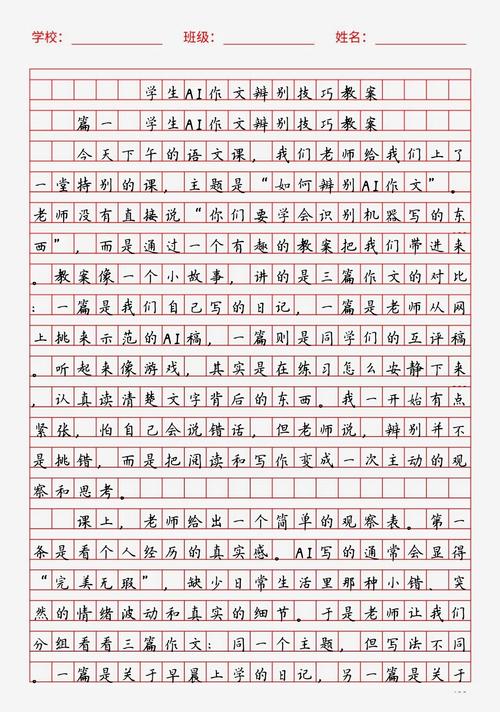 学校： 班级： 姓名：
学生AI作文辨别技巧教案
篇一 学生AI作文辨别技巧教案
今天下午的语文课，我们老师给我们上了
一堂特别的课，主题是“如何辨别AI作文”。
老师没有直接说“你们要学会识别机器写的东
西”，而是通过一个有趣的教案把我们带进来
。教案像一个小故事，讲的是三篇作文的对比
：一篇是我们自己写的日记，一篇是老师从网
上挑来示范的AI稿，一篇则是同学们的互评稿
。听起来像游戏，其实是在练习怎么安静下来
，认真读清楚文字背后的东西。我一开始有点
紧张，怕自己会说错话，但老师说，辨别并不
是挑错，而是把阅读和写作变成一次主动的观
察和思考。
课上，老师给出一个简单的观察表。第一
条是看个人经历的真实感。AI写的通常会显得
“完美无瑕”，缺少日常生活里那种小错、突
然的情绪波动和真实的细节。于是老师让我们
分组看看三篇作文：同一个主题，但写法不同
。一篇是关于早晨上学的日记，另一篇是关于